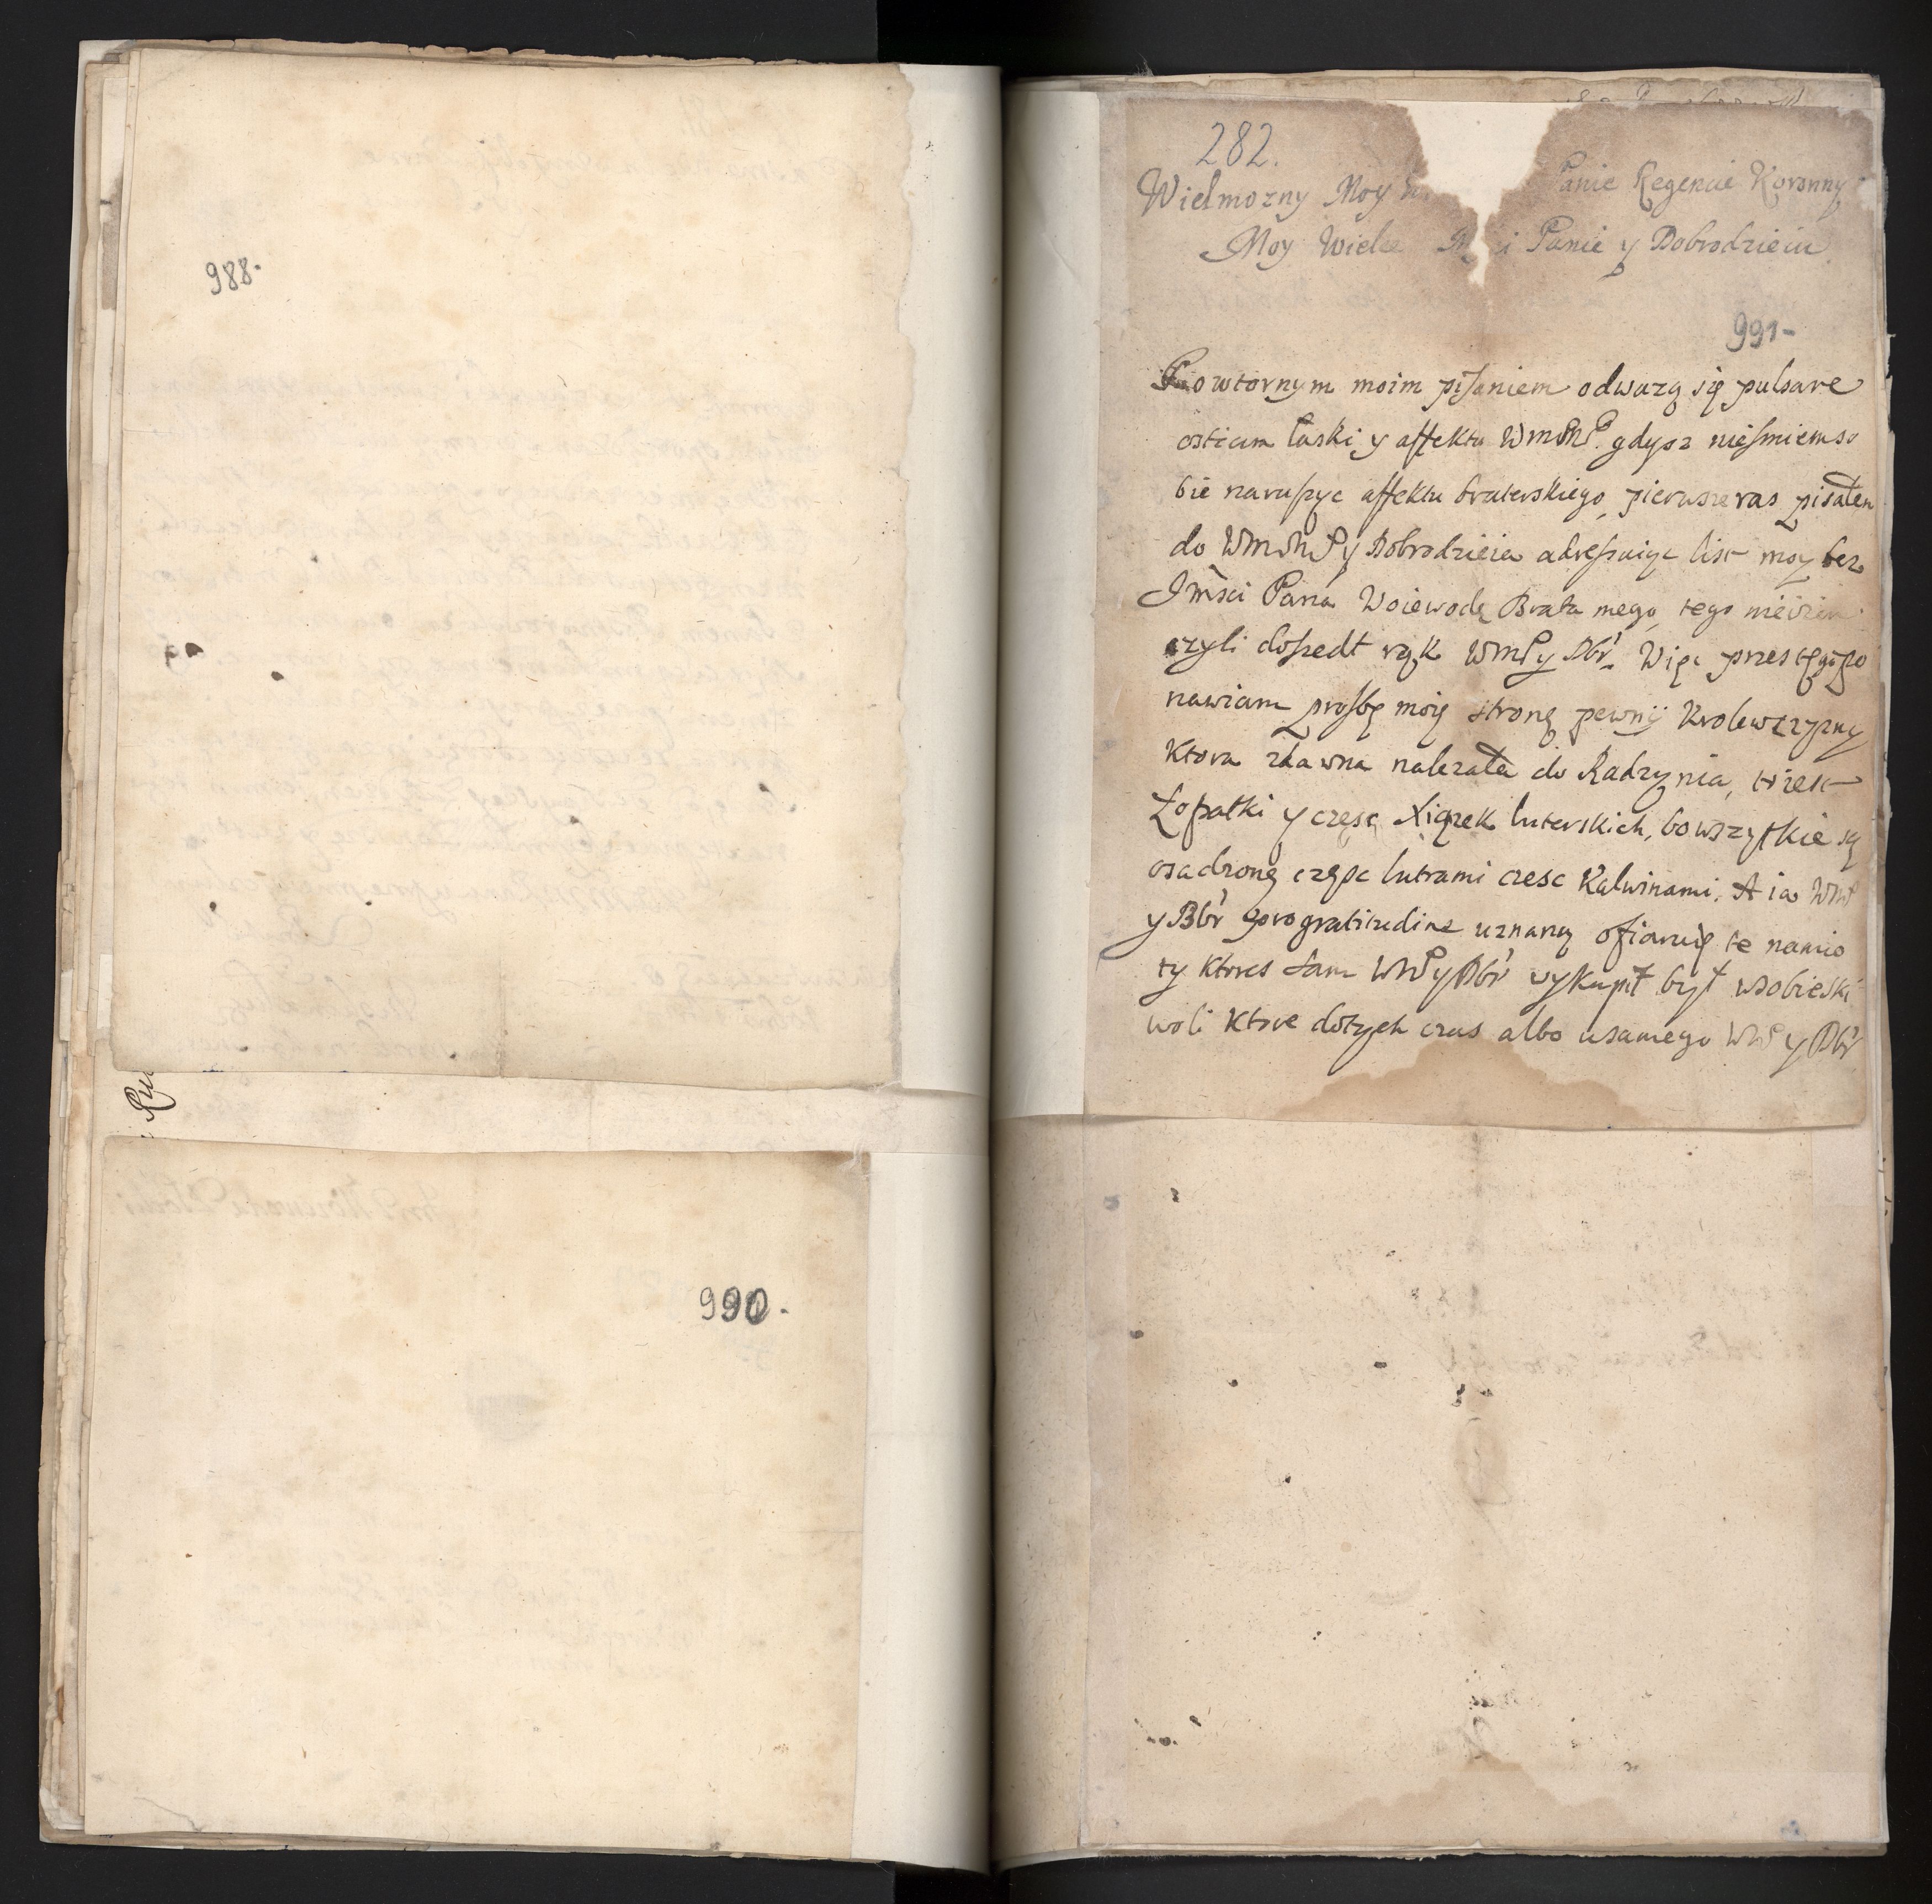 988.
990.
282.
Wielmozny Moy Panie Regencie Koronny
Moy Wielce i Panie y Dobrodzieiu
991-
Powtornym moim pisaniem odwazą się pulsare
ostium łaski y affektu WmMP. gdysz nieśmiem so
bie naruszyc affektu braterskiego, pierwsze ras pisałem
do WmMP y Dobrodzieia adressuiąc list moy bez
Jmści Pana Woiewodę Brata mego, tego niewiem
czyli doszedł rąk WmP y Dbr. Więc przes tęgo po
nawiam prosbę moię stroną pewnij Krolewczyzny
Ktora zdawna nalezała do Radzynia, t iest
Łopatki y częsc Xiązek luterskich, bo wszytkie są
osadzoną częsc lutrami czesc Kalwinami. A ia WmP
y Dbr pro gratitudine uznaną ofiaruię te namio
ty ktores sam WmP y Dbr wykupił był w Sobieski
woli Ktore dotych czas albo usamego WmP y Dbr